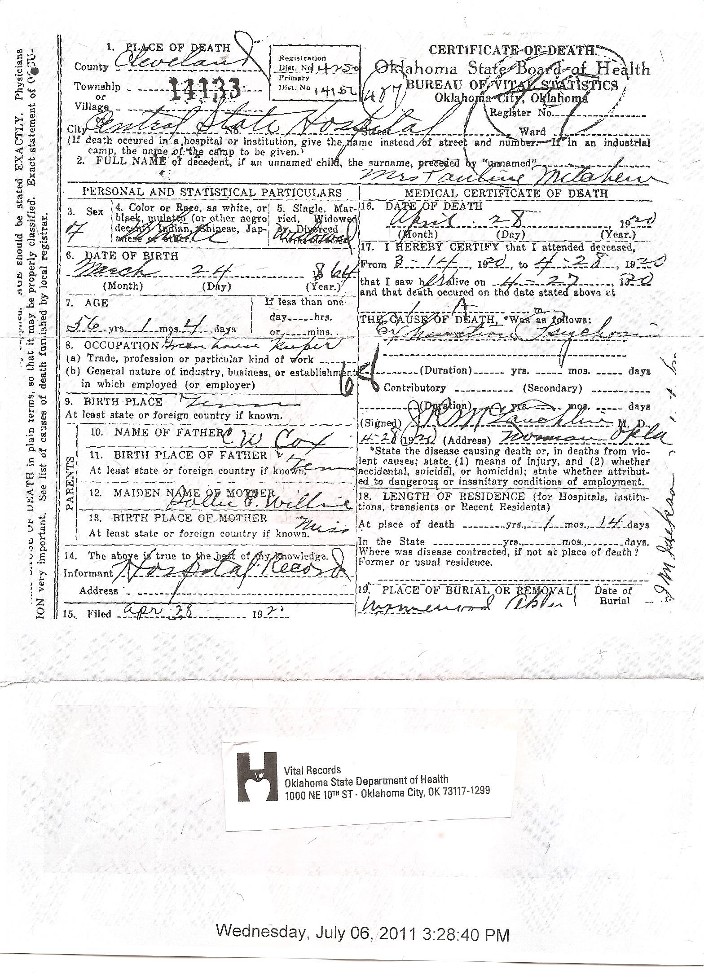 1. PLACE OF DEATH
County Cleveland
Township
14133
Village
or
City Central State Hospital
Registration
Dist. No
Primary
Dist. No
CERTIFICATE OF DEATH.
Oklahoma State Board of Health
BUREAU OF VITAL STATISTICS
Oklahoma City, Oklahoma
Register No.
Ward
(If death occured in a hospital or institution, give the name instead of street and number. If in an industrial
camp, the name of the camp to be given.)
2. FULL NAME of decedent, if an unnamed child, the surname, preceded by "unnamed"
Mrs Pauline
PERSONAL AND STATISTICAL PARTICULARS
3. Sex
4. Color or Race, as white, or
black, mulatto (or other negro
decent), Indian, Chinese, Jap-
anese or other.
5. Single, Mar-
ried, Widowed
or Divorced
Widowed
6. DATE OF BIRTH
March 24 1864
(Month) (Day) (Year.)
7. AGE
56 yrs. 1 mos. 4 days
If less than one
day hrs.
or mins.
8. OCCUPATION keeper
(a) Trade, profession or particular kind of work
(b) General nature of industry, business, or establishment
in which employed (or employer)
9. BIRTH PLACE Tenn
At least state or foreign country if known.
PARENTS
10. NAME OF FATHER C W Cox
11. BIRTH PLACE OF FATHER Tenn
At least state or foreign country if known.
12. MAIDEN NAME OF MOTHER
13. BIRTH PLACE OF MOTHER Miss
At least state or foreign country if known.
14. The above is true to the best of my knowledge.
Informant Hospital Record
Address
15. Filed Apr 28 192
MEDICAL CERTIFICATE OF DEATH
16. DATE OF DEATH
April 28 1920
(Month) (Day) (Year.)
17. I HEREBY CERTIFY that I attended deceased,
From 3-14 1920, to 4-28, 1920
that I saw her alive on 4-27 1920
and that death occured on the date stated above at
m.
THE CAUSE OF DEATH, *Was as follows:
Exhaustion Psychosis
(Duration) yrs. mos. days
Contributory (Secondary)
(Duration) yrs. mos. days
(Signed) M. D.
4-28 1920 (Address) Norman Okla
*State the disease causing death or, in deaths from vio-
lent causes; state (1) means of injury, and (2) whether
accidental, suicidal, or homicidal; state whether attribut-
ed to dangerous or insanitary conditions of employment.
18. LENGTH OF RESIDENCE (for Hospitals, institu-
tions, transients or Recent Residents)
At place of death yrs. 1 mos. 14 days
In the State yrs. mos. days.
Where was disease contracted, if not at place of death?
Former or usual residence.
19. PLACE OF BURIAL OR REMOVAL
Date of
Burial
AGE should be stated EXACTLY. Physicians
OF DEATH in plain terms, so that it may be properly classified. Exact statement of OCCU-
ION very important. See list of causes of death furnished by local registrar.
Vital Records
Oklahoma State Department of Health
1000 NE 10TH ST - Oklahoma City, OK 73117-1299
Wednesday, July 06, 2011 3:28:40 PM